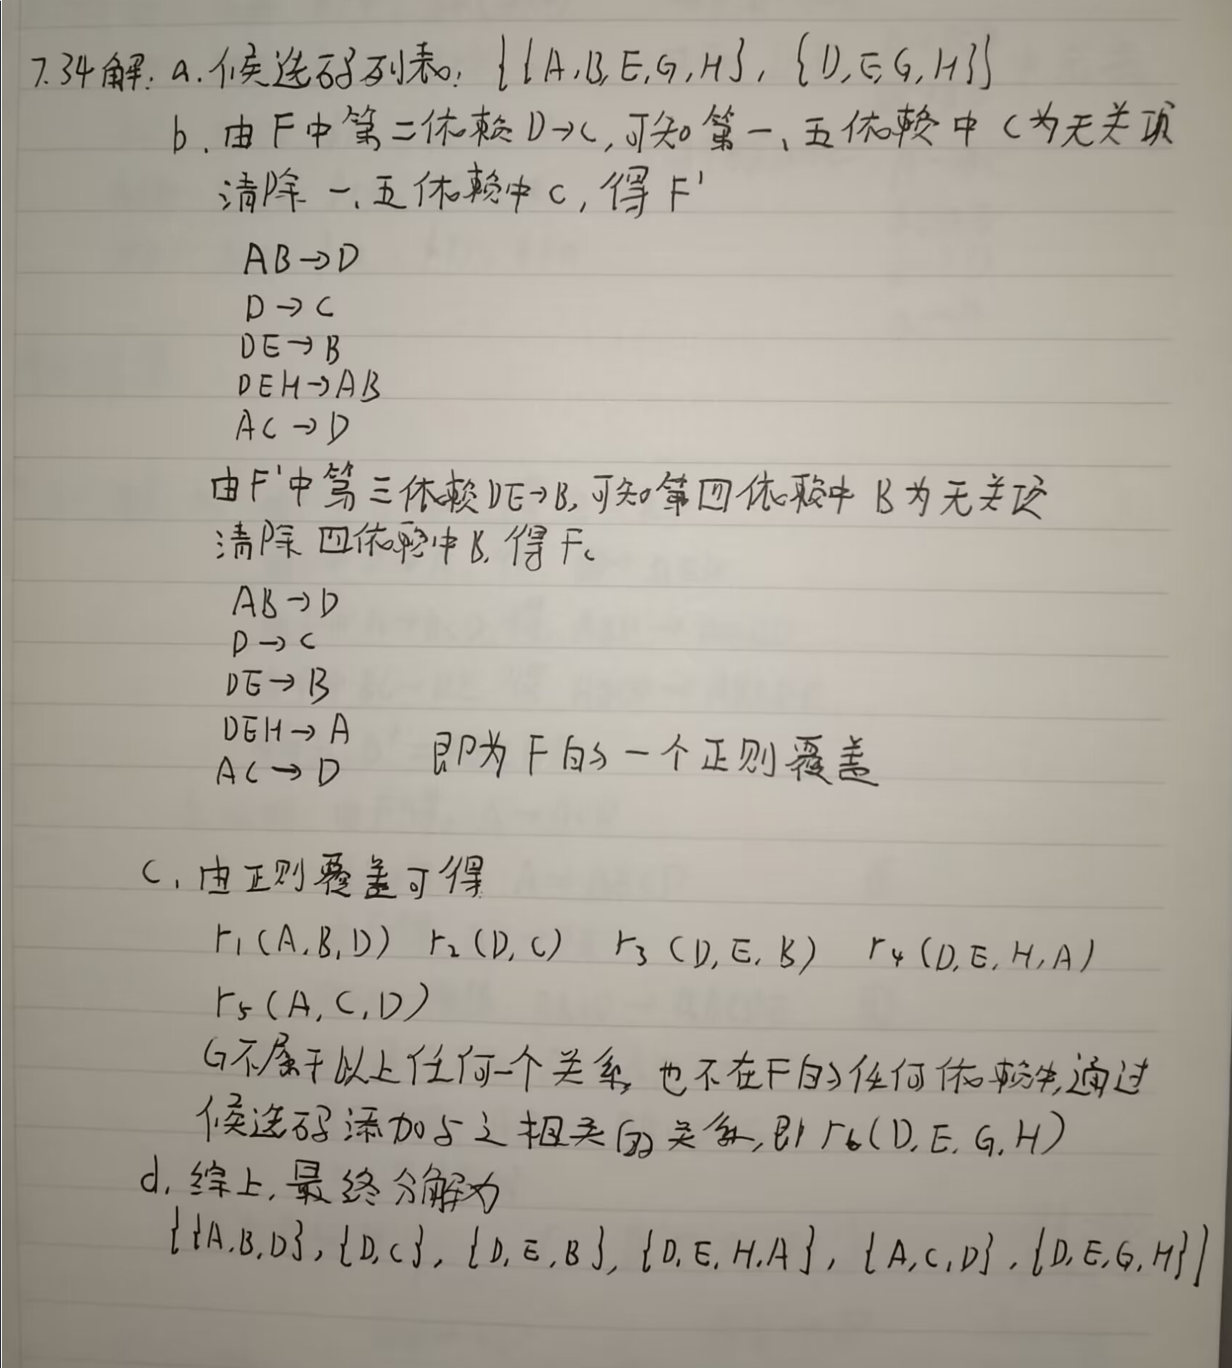 7.34解: a. 候选码列表: {{A,B,E,G,H}, {D,E,G,H}}
b. 由F中第二依赖D→C,可知第一、五依赖中C为无关项
清除一、五依赖中C,得F'
AB→D
D→C
DE→B
DEH→AB
AC→D
由F'中第三依赖DE→B,可知第四依赖中B为无关项
清除四依赖中B,得Fc
AB→D
D→C
DE→B
DEH→A
AC→D 即为F的一个正则覆盖
C、由正则覆盖可得
r₁(A,B,D) r₂(D,C) r₃(D,E,B) r₄(D,E,H,A)
r₅(A,C,D)
G不属于以上任何一个关系,也不在F的任何依赖中,通过
候选码添加与之相关的关系,即r₆(D,E,G,H)
d. 综上,最终分解为
{{A,B,D},{D,C},{D,E,B},{D,E,H,A},{A,C,D},{D,E,G,H}}